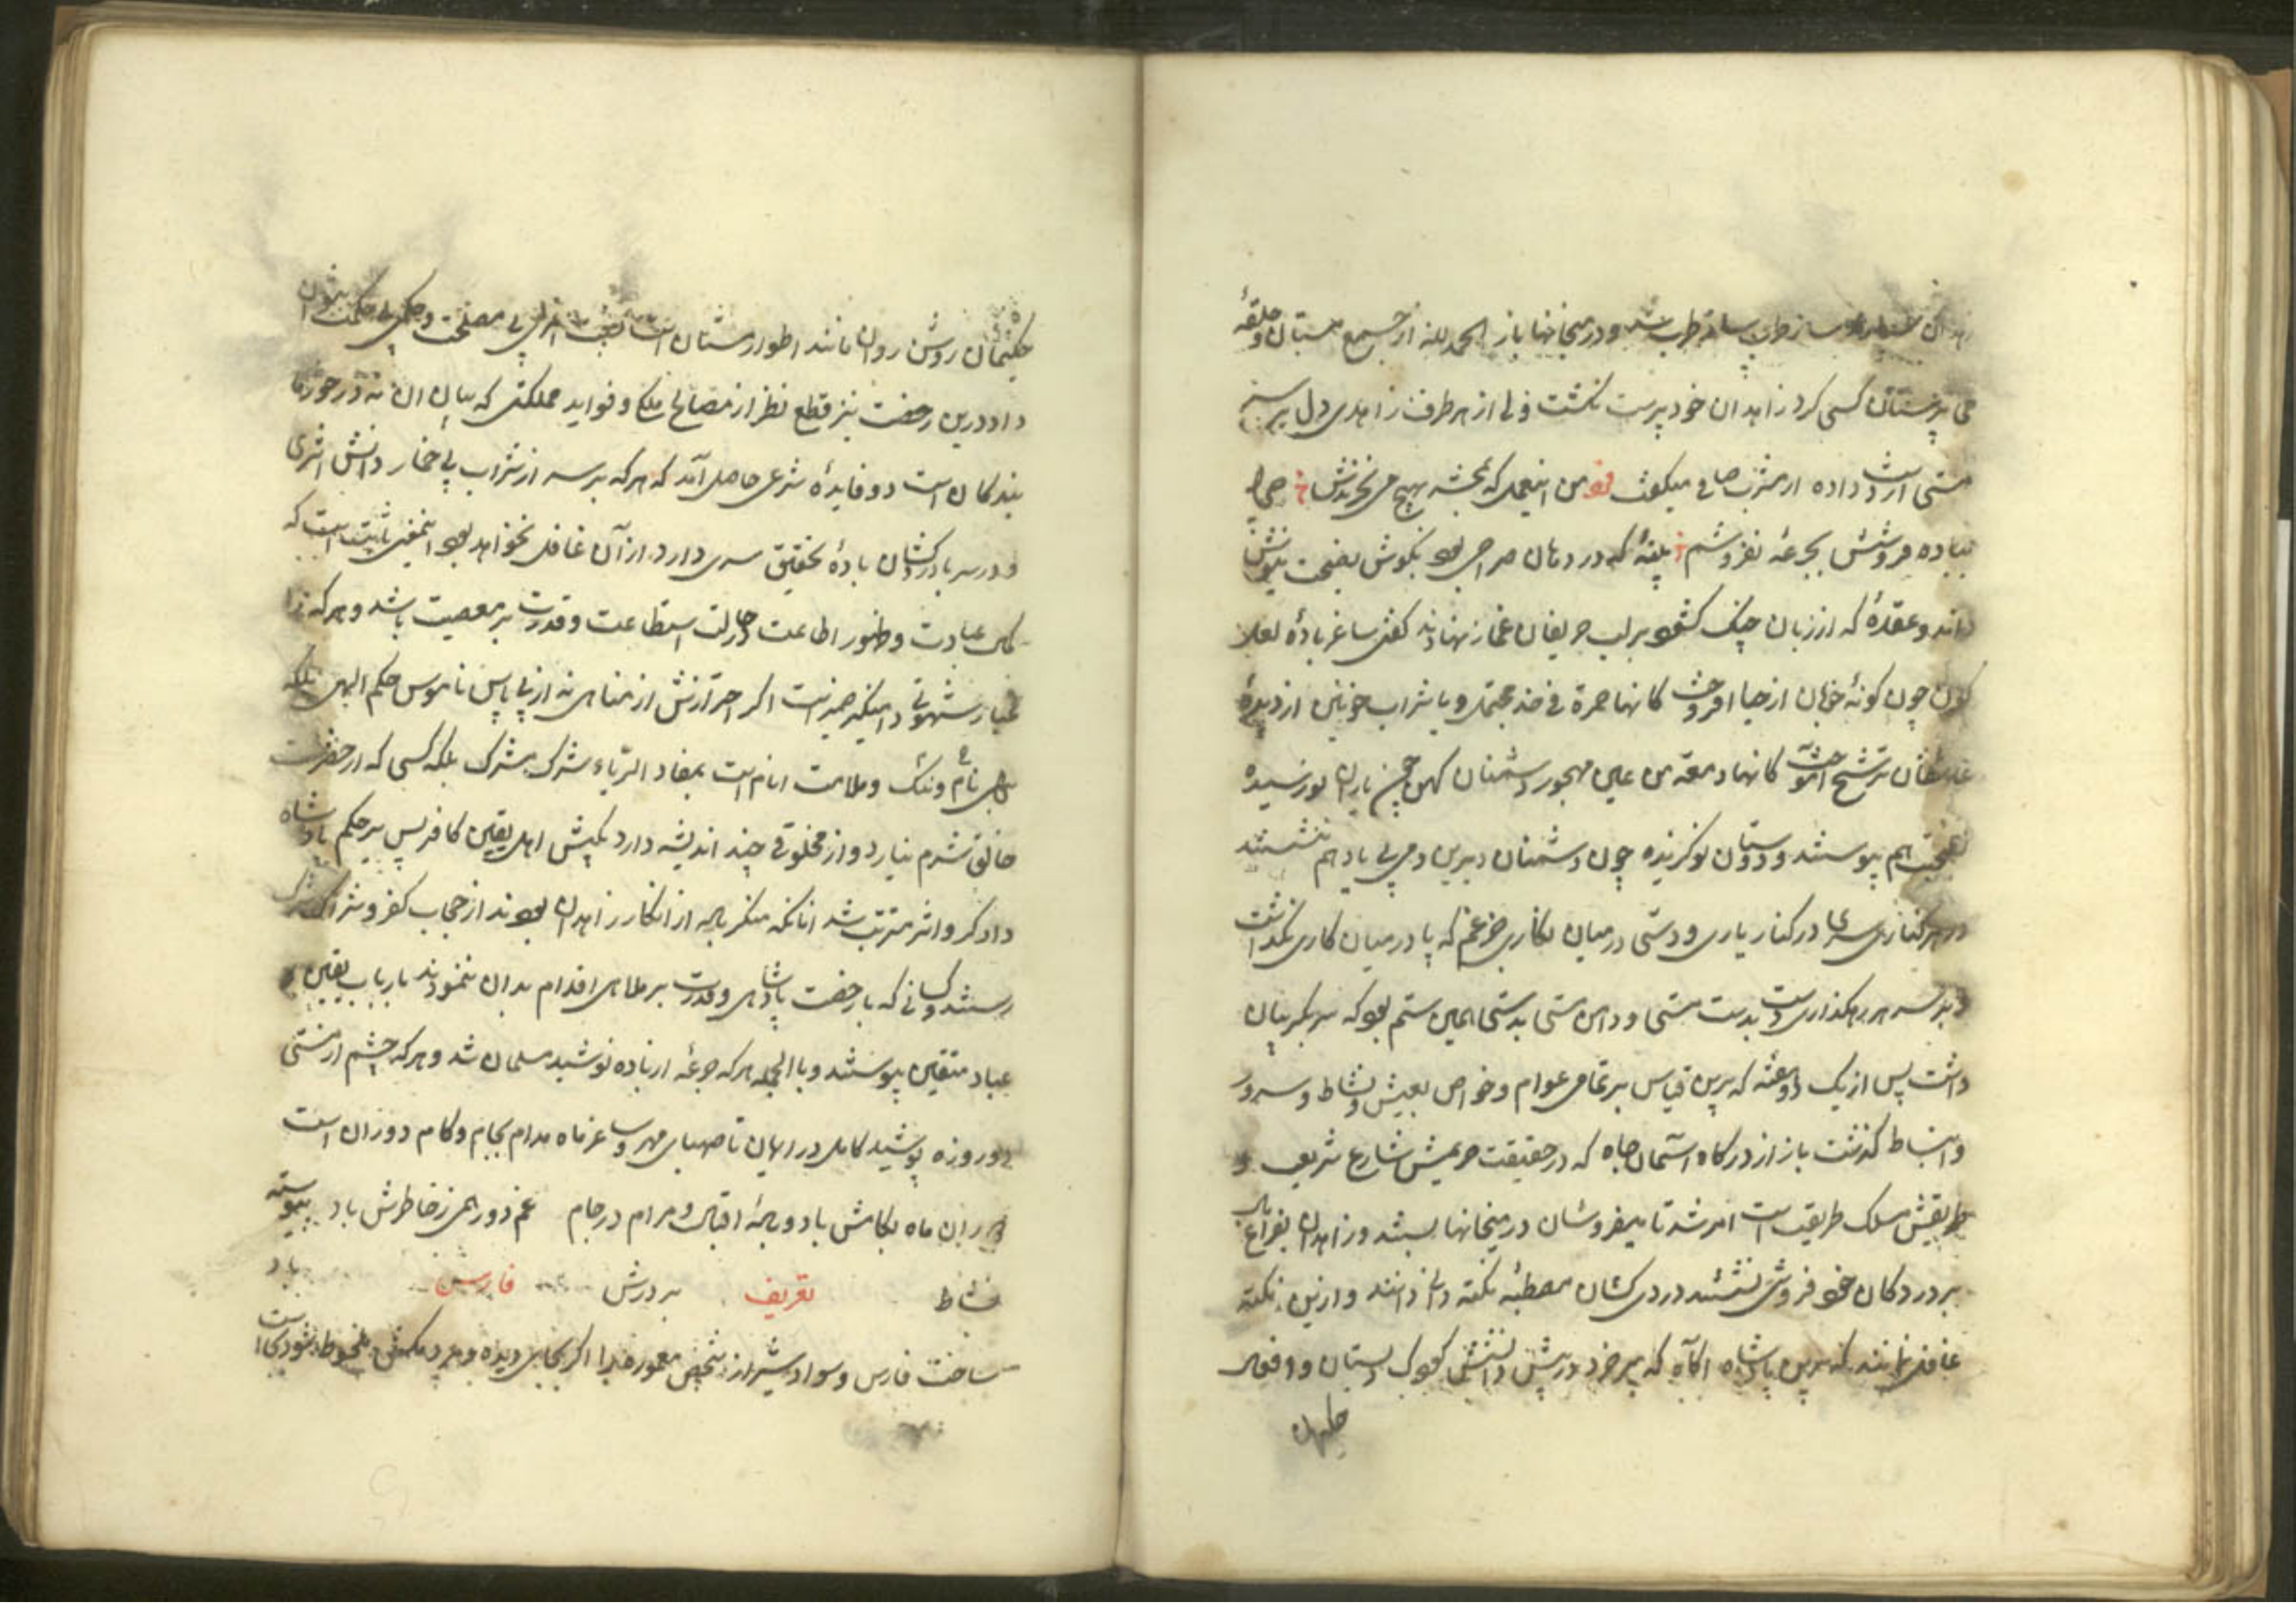 ساز طرب و در میخانها باز الحمد لله از جمیع مستان و حلقهٔ
می پرستان کسی کرد زاهدان خود پرست نکشت ولی از هر طرف زاهدی دل
مستی از دست داده از مشرب صافی میکوید تو من اینعمل که بمن هیچ می نخرندش
بباده فروشش بجرعه نفروشم پنبهٔ که در دهان صراحی بود بکوش نصیحت نیوش
ماند و عقدهٔ که از زبان چنک کشود بر لب حریفان غماز نهادند کفتی ساغر بادهٔ لعل
کون چون کونهٔ خوبان از حیا افروخت کانها حمرة فی خد محتمل و یا شراب خونین از دیدهٔ
ترشح آموخت کانها دمعة من عین مهجور دشمنان کهن چون یاران نو رسیده
بصحبت هم پیوستند و دوستان نو کزیده چون دشمنان دیرین دمی بی یاد هم ننشستند
در هر کناری سری در کنار یاری و دستی در میان نکاری جز غم که پا در میان کاری نکذاشت
و بر سر هر رهکذاری دست بدست مستی و دامن مستی بدستی همین ستم بود که سر بکریبان
داشت پس از یک دو هفته که برین قیاس بر تمامی عوام و خواص بعیش و نشاط و سرور
و انبساط کذشت باز از درکاه آسمان جاه که در حقیقت حریمش شارع شریعت و
طریقش مسلک طریقت است امر شد تا میفروشان در میخانها بستند و زاهدان بفراغ بال
بر در دکان خود فروشی نشستند دردی کشان مصطبهٔ نکته دانی دانند و ازین نکته
غافل نمانند که برین پادشاه اکاه که پیر خرد در پیش دانشش کودک دبستان و افعال
حکیمان
حکیمان روش روان مانند اطوار مستان است هیچ امری بی مصلحت و حکمی بی حکمت نتوان
داد درین رخصت نیز قطع نظر از مصالح ملکی و فواید مملکتی که بیان آن نه در خور ما
بندکان است دو فایدهٔ شرعی حاصل آمد که هر که بر سر از شراب بی خمار دانش اثری
و در سر با دردکشان بادهٔ تحقیق سری دارد از آن غافل نخواهد بود اینمعنی ثابت است که
کمال عبادت و ظهور اطاعت در حالت استطاعت و قدرت بر معصیت باشد و هر که را
غبار شهوتی دامنکیر ضمیر است اکر احترازش از مناهی نه از پی پاس ناموس حکم الهی بلکه
برای نام و ننک و ملامت انام است بمفاد الریاء شرک مشرک بلکه کسی که از حضرت
خالق شرم نیارد و از مخلوقی چند اندیشه دارد بکیش اهل یقین کافر پس بر حکم پادشاه
دادکر دو اثر مترتب شد آنانکه منکر باده از انکار زاهدان بودند از حجاب کفر و شرک
رستند و کسانی که با رخصت پادشاهی و قدرت بر ملاهی اقدام بدان ننمودند بارباب یقین و
عباد متقین پیوستند و بالجمله هر که جرعهٔ از باده نوشید مسلمان شد و هر که چشم از مستی
دو روزه پوشید کامل در ایمان تا صهبای مهر و ساغر ماه مدام بجام و کام دوران است
دوران ماه بکامش باد و بادهٔ اقبال و مرام در جام غم دور همی ز خاطرش باد پیوسته
نشاط بر درش باد
تعریف فارس
ساحت فارس و سواد شیراز شخص معموره را اکر بجای دیده و مردمکش ملحوظ شود بجا است